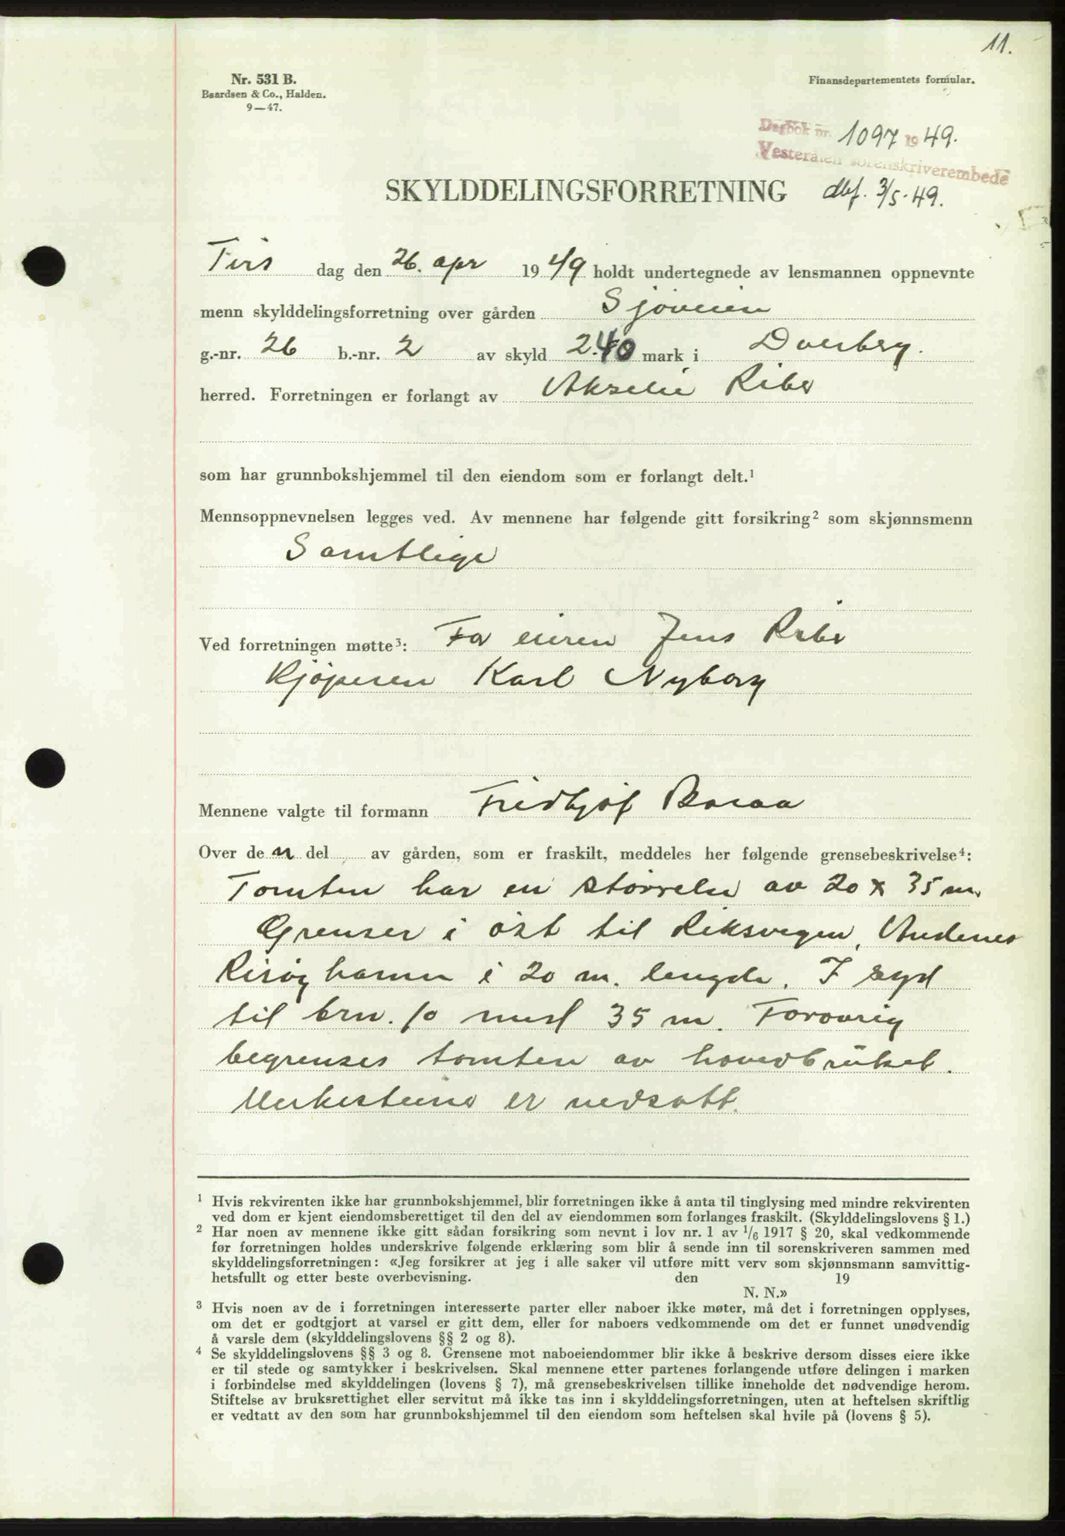 11.
Nr. 531 B.
Baardsen & Co., Halden.
9—47.
Finansdepartementets formular.
Dagbok nr. 1097 1949.
Vesterålen sorenskriverembede
SKYLDDELINGSFORRETNING dbf. 3/5-49.
Tirs dag den 26. apr 1949 holdt undertegnede av lensmannen oppnevnte
menn skylddelingsforretning over gården Sjøveien
g.-nr. 26 b.-nr. 2 av skyld 2.40 mark i Dverberg.
herred. Forretningen er forlangt av Akselie Riber
som har grunnbokshjemmel til den eiendom som er forlangt delt.¹
Mennsoppnevnelsen legges ved. Av mennene har følgende gitt forsikring² som skjønnsmenn
Samtlige
Ved forretningen møtte³: For eieren Jens Riber
Kjøperen Karl Nyborg
Mennene valgte til formann Fridtjof
Over den del av gården, som er fraskilt, meddeles her følgende grensebeskrivelse⁴:
Tomten har en størrelse av 20 x 35 m.
Grenser i øst til Riksvegen, Andenes
Risøyhamn i 20 m. lengde. I syd
til brn. 10 med 35 m. Forøvrig
begrenses tomten av hovedbruket.
Merkesteine er nedsatt.
¹ Hvis rekvirenten ikke har grunnbokshjemmel, blir forretningen ikke å anta til tinglysing med mindre rekvirenten
ved dom er kjent eiendomsberettiget til den del av eiendommen som forlanges fraskilt. (Skylddelingslovens § 1.)
² Har noen av mennene ikke gitt sådan forsikring som nevnt i lov nr. 1 av 1/6 1917 § 20, skal vedkommende
før forretningen holdes underskrive følgende erklæring som blir å sende inn til sorenskriveren sammen med
skylddelingsforretningen: «Jeg forsikrer at jeg i alle saker vil utføre mitt verv som skjønnsmann samvittig-
hetsfullt og etter beste overbevisning. den 19
N. N.»
³ Hvis noen av de i forretningen interesserte parter eller naboer ikke møter, må det i forretningen opplyses,
om det er godtgjort at varsel er gitt dem, eller for naboers vedkommende om det er funnet unødvendig
å varsle dem (skylddelingslovens §§ 2 og 8).
⁴ Se skylddelingslovens §§ 3 og 8. Grensene mot naboeiendommer blir ikke å beskrive dersom disses eiere ikke
er til stede og samtykker i beskrivelsen. Skal mennene etter partenes forlangende utføre delingen i marken
i forbindelse med skylddelingen (lovens § 7), må grensebeskrivelsen tillike inneholde det nødvendige herom.
Stiftelse av bruksrettighet eller servitut må ikke tas inn i skylddelingsforretningen, uten at heftelsen skriftlig
er vedtatt av den som har grunnbokshjemmel til den eiendom som heftelsen skal hvile på (lovens § 5).